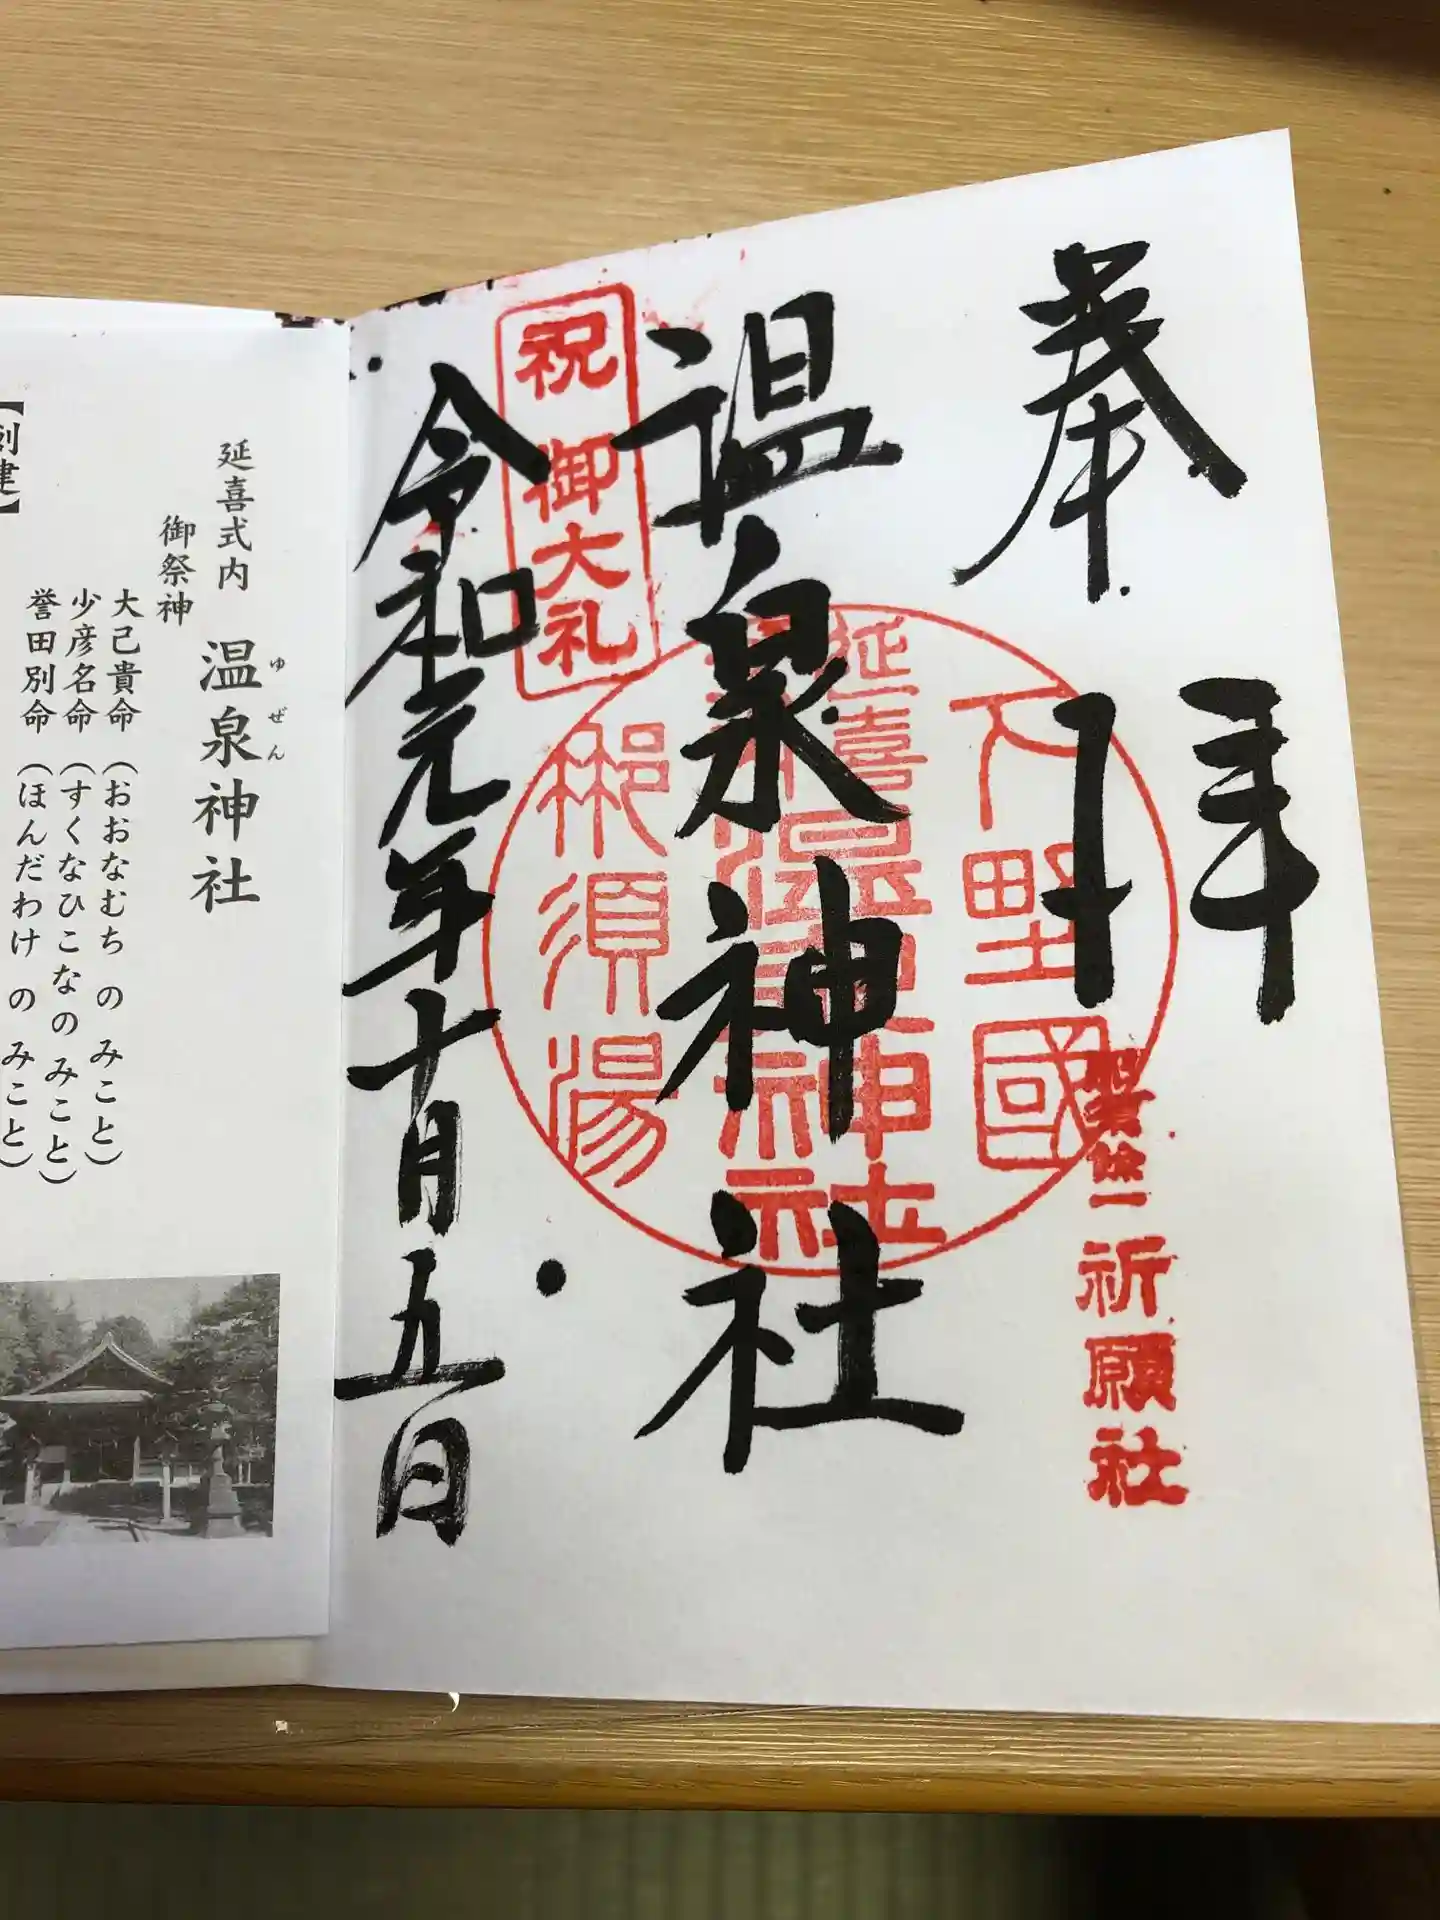 奉拝
温泉神社
令和元年十月五日
祝 御大礼
下野國
延喜式内温泉神社
那須湯
祈願社
延喜式内 温泉神社
ゆぜん
御祭神
大己貴命(おおなむち の みこと)
少彦名命(すくなひこなの みこと)
誉田別命(ほんだわけ の みこと)
【創建】